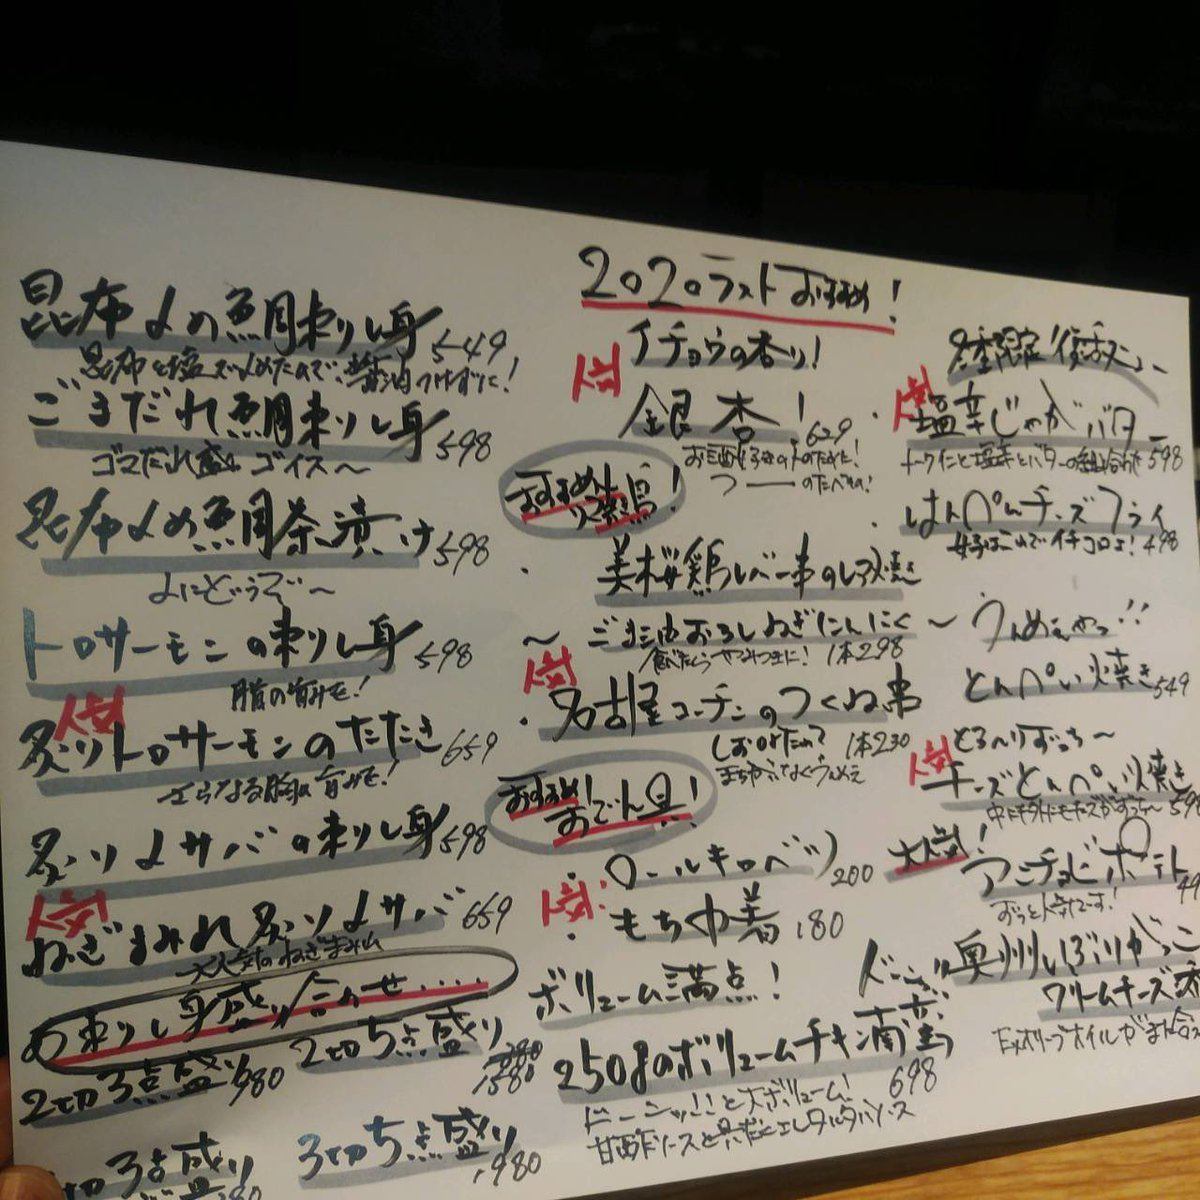 昆布〆め真鯛刺し身 549
昆布と塩で〆めたので、醤油つけずに!
ごまだれ真鯛刺し身 598
ゴマだれ盛りゴイス〜
昆布〆め真鯛茶漬け 598
〆にどうぞ〜
トロサーモンの刺し身 598
脂の旨みを!
人気
炙りトロサーモンのたたき 659
さらなる脂の旨みを!
炙り〆サバの刺し身 598
人気
ねぎまみれ炙り〆サバ 659
大人気のねぎまみれ
お刺し身盛り合わせ...
2切3点盛り 980
2切5点盛り 1580
3点盛り
3切5点盛り 1980
2020ラストおすすめ!
イチョウの香り!
人気
銀杏! 629
お酒好きの人のために!
つーーのたべもの!
おすすめ火焼鳥!
美桜鶏レバー串のレア焼き
〜ごま油おろしねぎにんにく〜
食べたらやみつきに! 1本298
人気
名古屋コーチンのつくね串
しおorたれ? 1本230
まちがいなくうんめえ
おすすめ!おでん具!
ロールキャベツ 200
人気!
もち巾着 180
ボリューム満点!
250gのボリュームチキン南蛮 698
ドーンッ!!と大ボリューム!
甘酢ソースと
タルタルソース
冬季限定!復活〜
人気
塩辛じゃがバター 598
はんぺんチーズフライ 498
女子はこれでイチコロよ!
うんめぇやつ!!
とんぺい焼き 549
とろ〜りずっち〜
人気
チーズとんぺい焼き
大人気!
アンチョビポテト
ずっと人気です!
奥州いぶりがっこ
クリームチーズ添
オリーブオイルがまた合